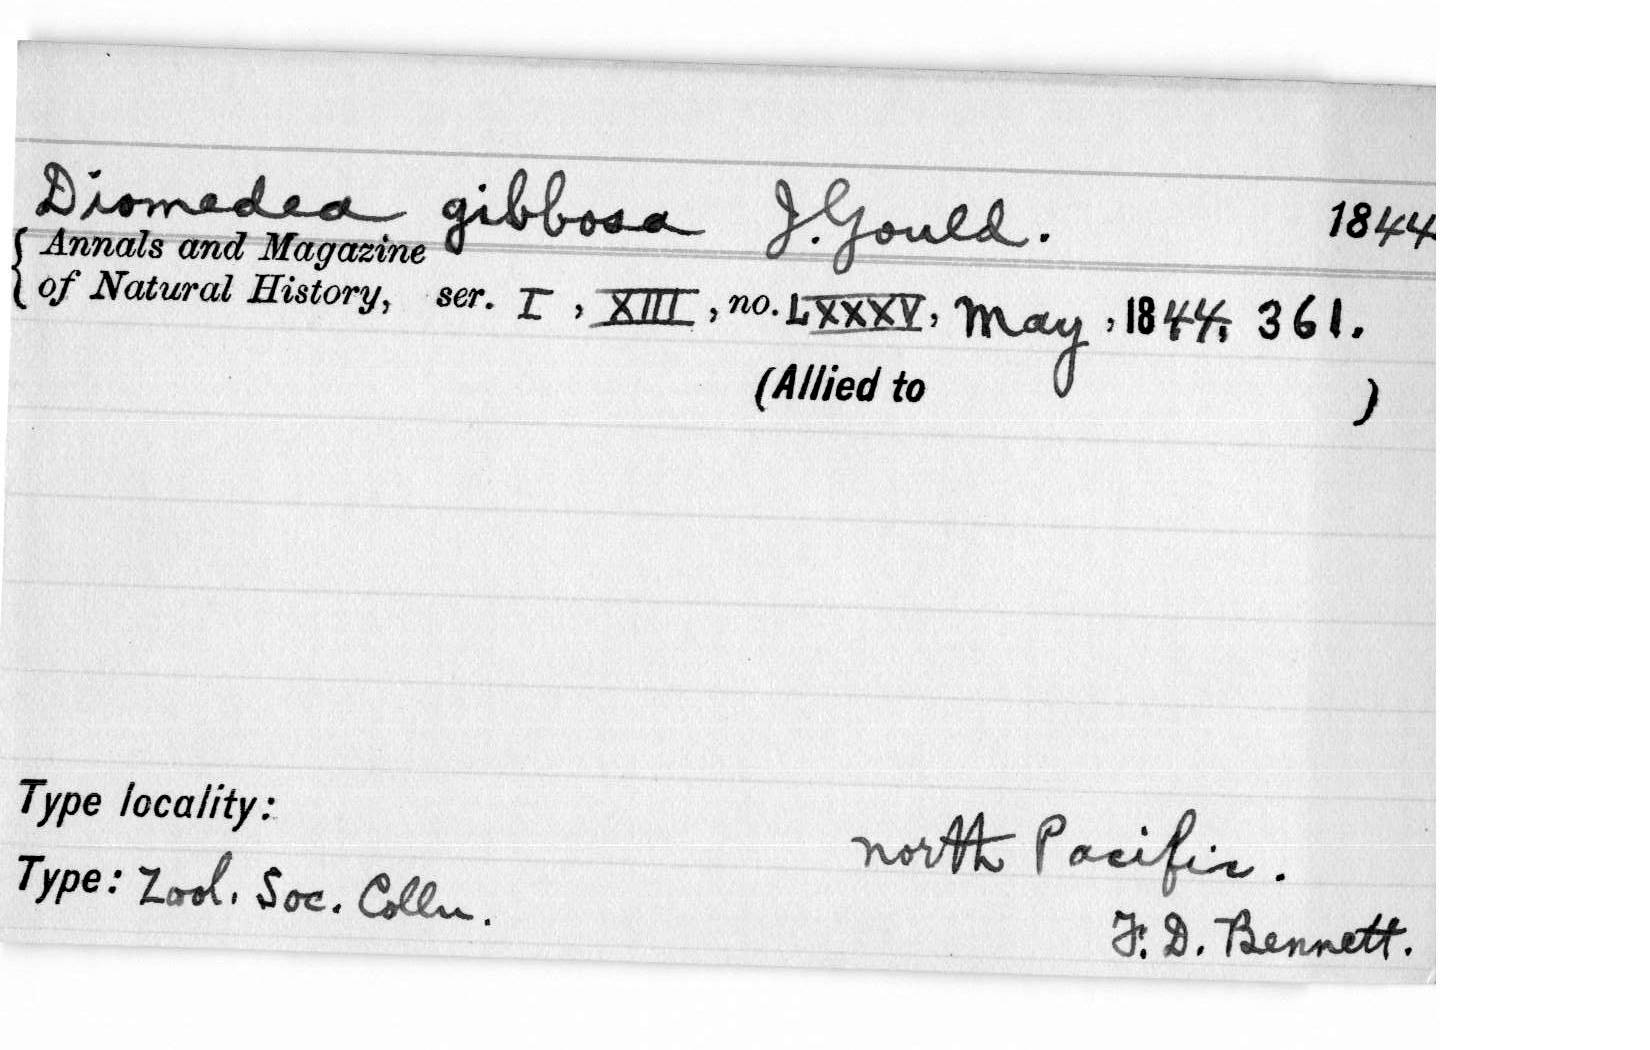 Diomedea gibbosa J. Gould. 1844
Annals and Magazine
of Natural History, ser. I, XIII, no. LXXXV, May, 1844, 361.
(Allied to )
Type locality:
north Pacific.
Type: Zool. Soc. Colln.
F. D. Bennett.